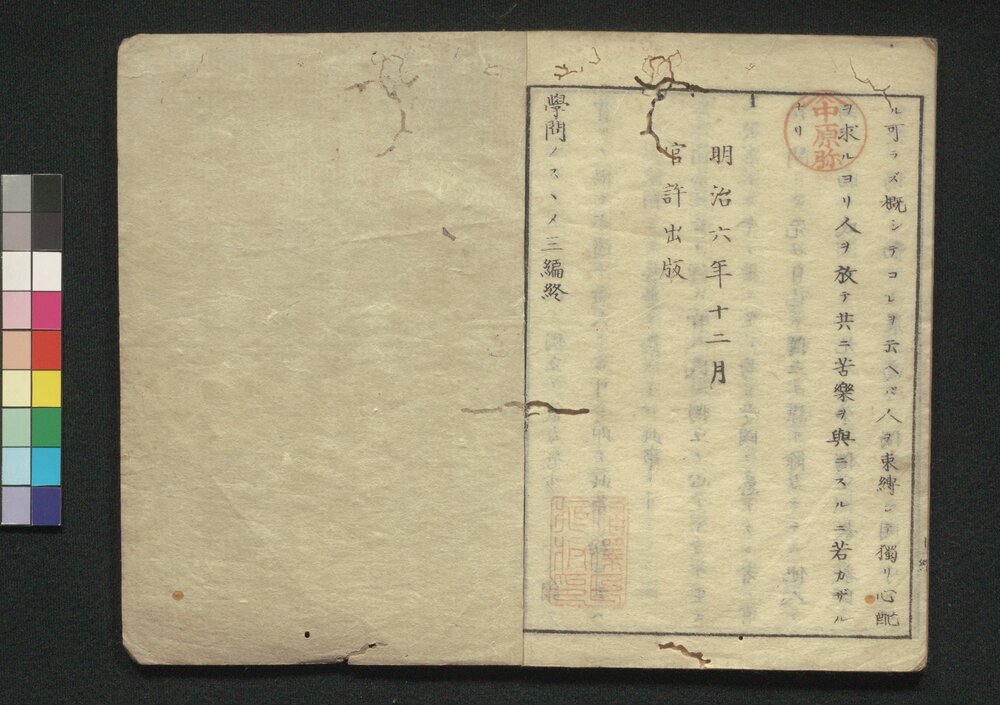 ル可ラズ概シテコレヲ云ヘバ人ヲ束縛シテ獨リ心配
ヲ求ルヨリ人ヲ放テ共ニ苦樂ヲ與ニスルニ若カザル
ナリ
明治六年十二月
官許出版
學問ノスヽメ三編終
中原弥